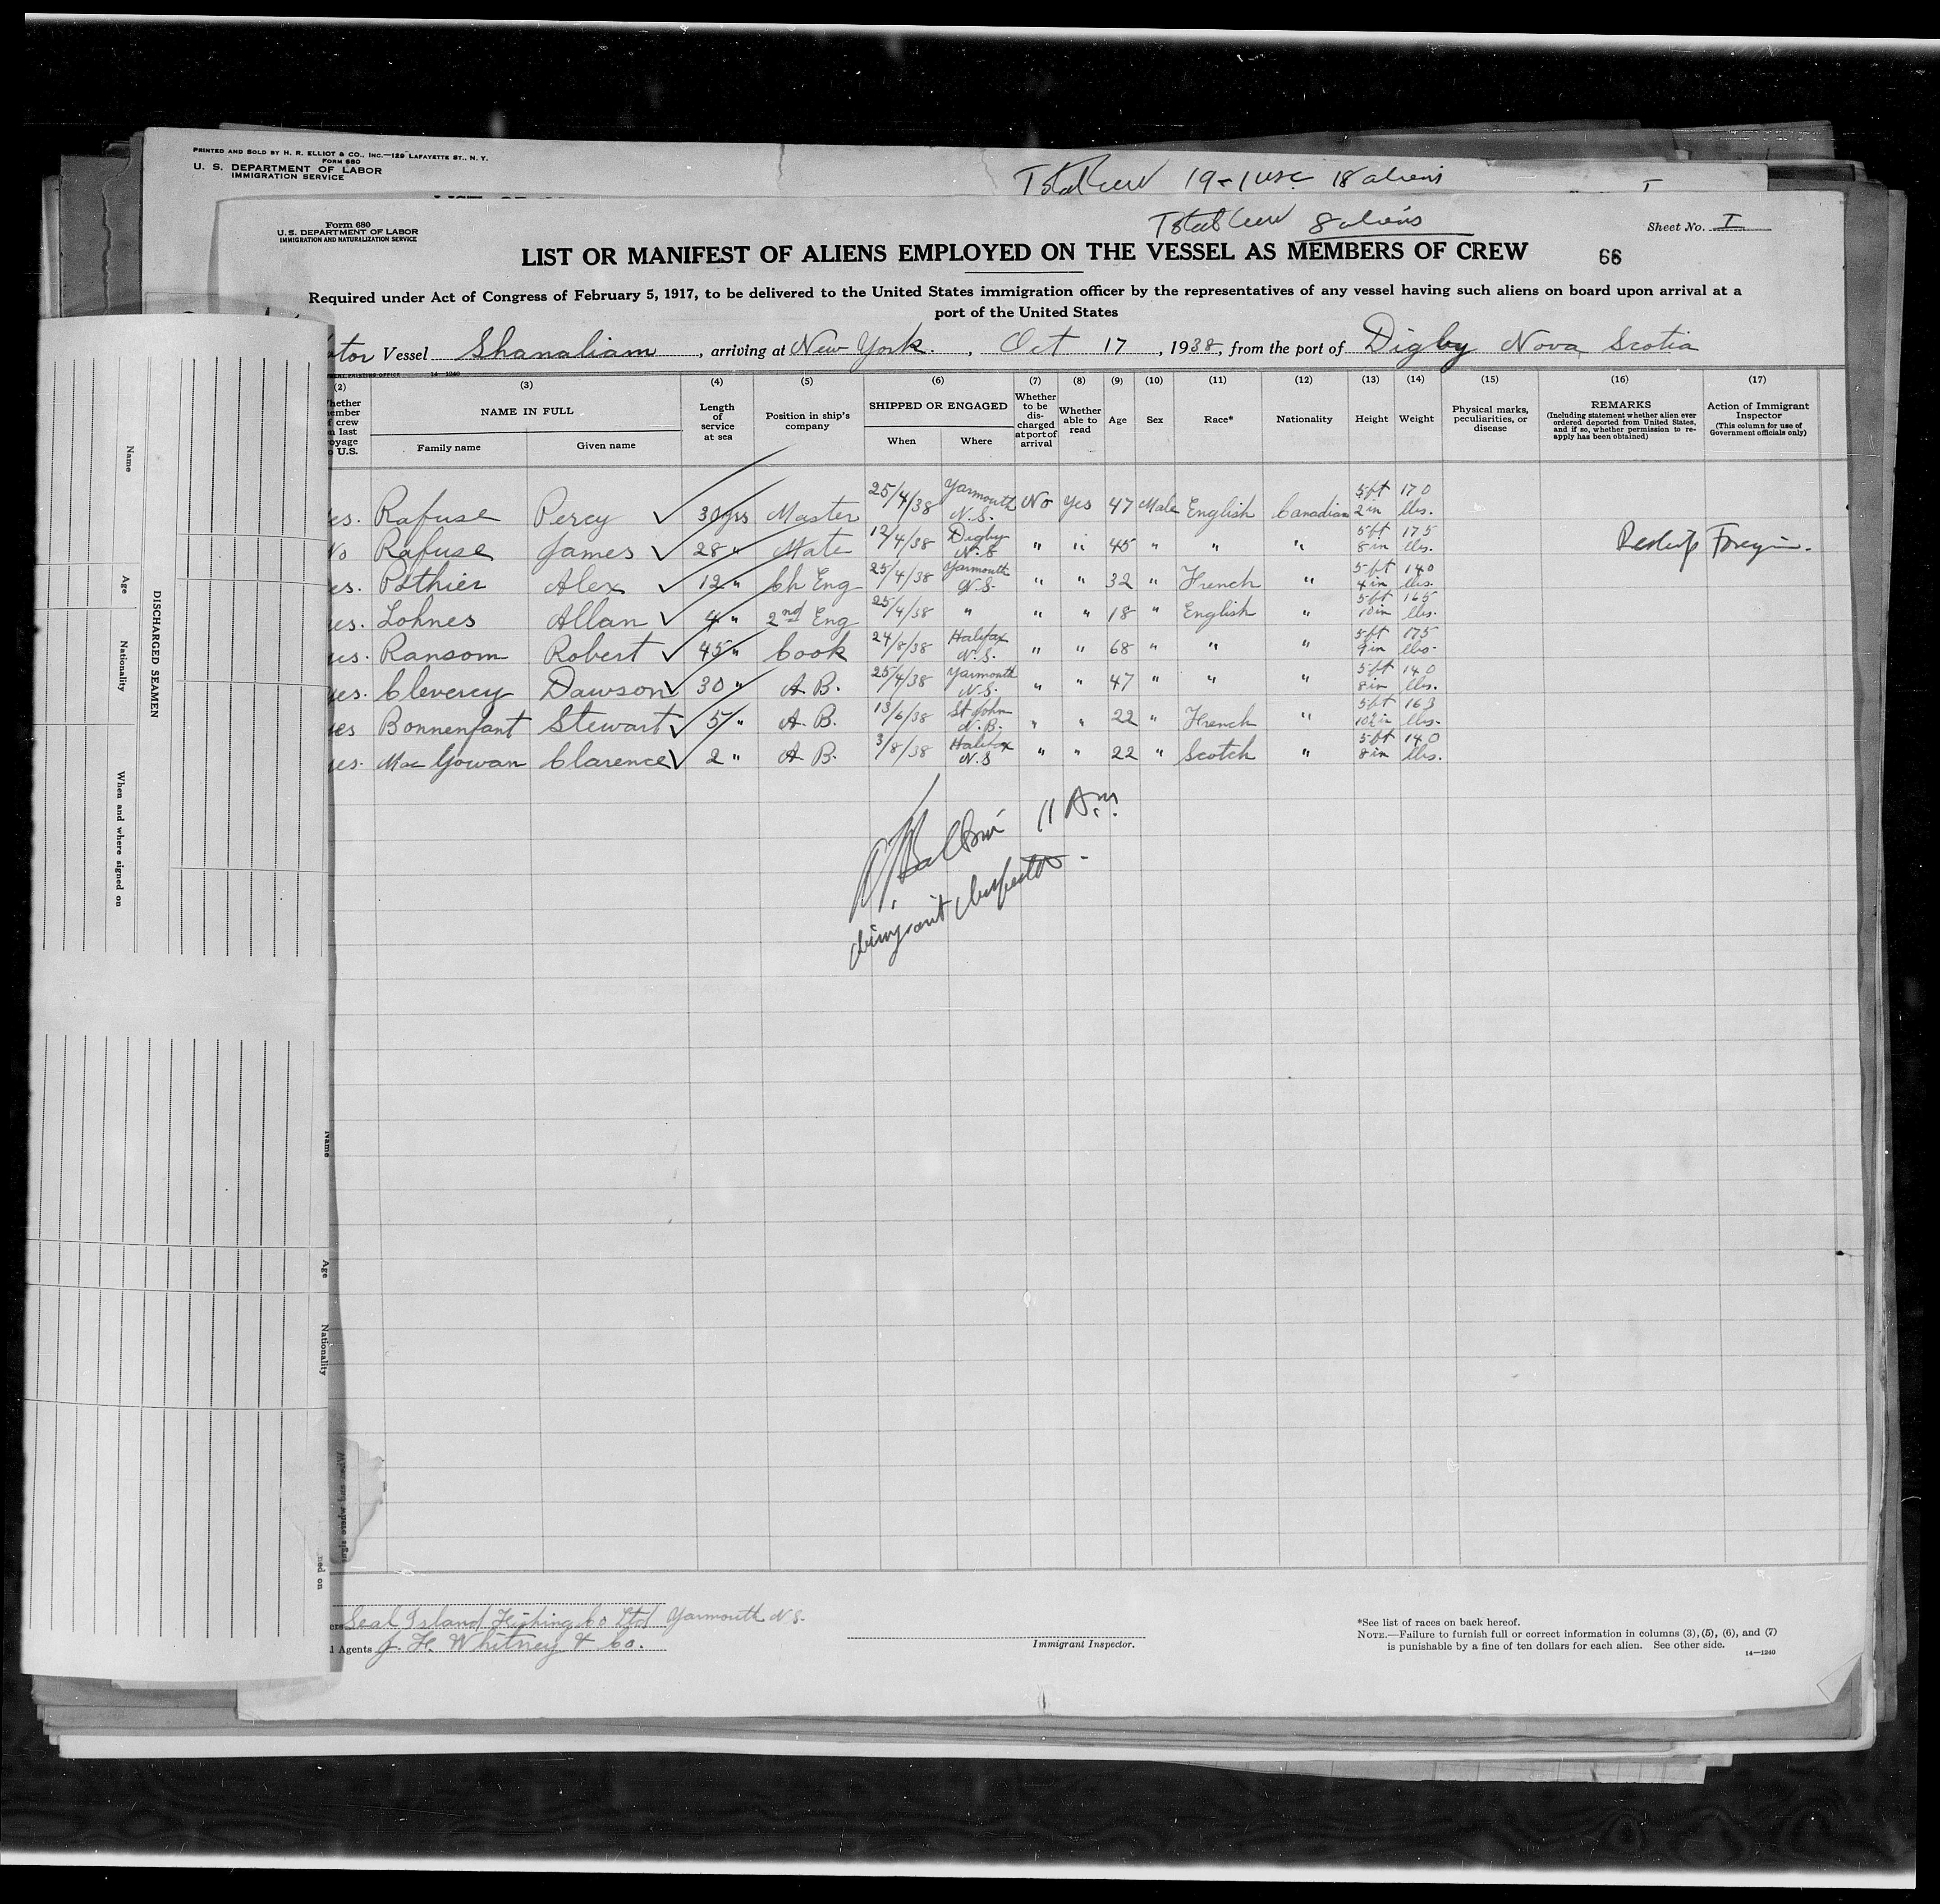 PRINTED AND SOLD BY H. R. ELLIOT & CO., INC.—129 LAFAYETTE ST., N. Y.
FORM 680
U. S. DEPARTMENT OF LABOR
IMMIGRATION SERVICE
Total Crew 19-1 USC. 18 aliens
Total Crew 8 aliens
Form 680
U.S. DEPARTMENT OF LABOR
IMMIGRATION AND NATURALIZATION SERVICE
Sheet No. I
LIST OR MANIFEST OF ALIENS EMPLOYED ON THE VESSEL AS MEMBERS OF CREW
66
Required under Act of Congress of February 5, 1917, to be delivered to the United States immigration officer by the representatives of any vessel having such aliens on board upon arrival at a
port of the United States
otor Vessel Shanaliam, arriving at New York., Oct 17, 1938, from the port of Digby Nova Scotia
14—1240
(2) (3) (4) (5) (6) (7) (8) (9) (10) (11) (12) (13) (14) (15) (16) (17)
hether
ember
f crew
n last
oyage
o U.S.
NAME IN FULL
Family name
Given name
Length
of
service
at sea
Position in ship's
company
SHIPPED OR ENGAGED
When
Where
Whether
to be
dis-
charged
at port of
arrival
Whether
able to
read
Age
Sex
Race*
Nationality
Height
Weight
Physical marks,
peculiarities, or
disease
REMARKS
(Including statement whether alien ever
ordered deported from United States,
and if so, whether permission to re-
apply has been obtained)
Action of Immigrant
Inspector
(This column for use of
Government officials only)
es. Rafuse Percy ✓ 30 yrs Master 25/4/38 Yarmouth N.S. No Yes 47 Male English Canadian 5 ft 2 in 170 lbs.
No Rafuse James ✓ 28 " Mate 12/4/38 Digby N.S " " 45 " " " 5 ft 8 in 175 lbs. Reship Foreign.
es. Pothier Alex ✓ 12 " Ch Eng 25/4/38 Yarmouth N.S. " " 32 " French " 5 ft 4 in 140 lbs.
es. Lohnes Allan ✓ 4 " 2nd Eng 25/4/38 " " " 18 " English " 5 ft 10 in 165 lbs.
es. Ransom Robert ✓ 45 " Cook 24/8/38 Halifax N.S. " " 68 " " " 5 ft 9 in 175 lbs.
yes. Clevercy Dawson ✓ 30 " A B. 25/4/38 Yarmouth N.S. " " 47 " " " 5 ft 8 in 140 lbs.
es Bonnenfant Stewart ✓ 5 " A. B. 13/6/38 St John N.B. " " 22 " French " 5 ft 10½ in 163 lbs.
es. Mac Gowan Clarence ✓ 2 " A B. 3/8/38 Halifax N.S " " 22 " Scotch " 5 ft 8 in 140 lbs.
11 A.m.
Immigrant Inspector.
DISCHARGED SEAMEN
Name
Age
Nationality
When and where signed on
Name
Age
Nationality
ned on
ers Seal Island Fishing Co Ltd Yarmouth N.S.
l Agents J. H. Whitney & Co.
Immigrant Inspector.
*See list of races on back hereof.
NOTE.—Failure to furnish full or correct information in columns (3), (5), (6), and (7)
is punishable by a fine of ten dollars for each alien. See other side.
14—1240